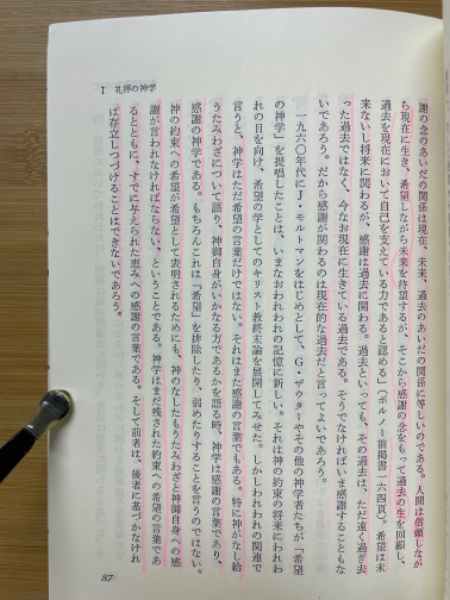 I 礼拝の神学
謝の念のあいだの関係は現在、未来、過去のあいだの関係に等しいのである。人間は信頼しなが
ら現在に生き、希望しながら未来を待望するが、そこから感謝の念をもって過去の生を回顧し、
過去を現在において自己を支えている力であると認める」（ボルノー前掲書一六四頁）。希望は未
来ないし将来に関わるが、感謝は過去に関わる。過去といっても、その過去は、ただ遠く過ぎ去
った過去ではなく、今なお現在に生きている過去である。そうでなければいま感謝することもな
いであろう。だから感謝が関わるのは現在的な過去だと言ってよいであろう。
一九六〇年代にJ・モルトマンをはじめとして、G・ザウターやその他の神学者たちが「希望
の神学」を提唱したことは、いまなおわれわれの記憶に新しい。それは神の約束の将来にわれわ
れの目を向け、希望の学としてのキリスト教終末論を展開してみせた。しかしわれわれの関連で
言うと、神学はただ希望の言葉だけではない。それはまた感謝の言葉でもある。特に神がなし給
うたみわざについて語り、神御自身がいかなる方であるかを語る時、神学は感謝の言葉であり、
感謝の神学である。もちろんこれは「希望」を排除したり、弱めたりすることを言うのではない。
神の約束への希望が希望として表明されるためにも、神のなしたもうたみわざと神御自身への感
謝が言われなければならない、ということである。神学はまだ残された約束への希望の言葉であ
るとともに、すでに与えられた恵みへの感謝の言葉である。そして前者は、後者に基づかなけれ
ば存立しつづけることはできないであろう。
87